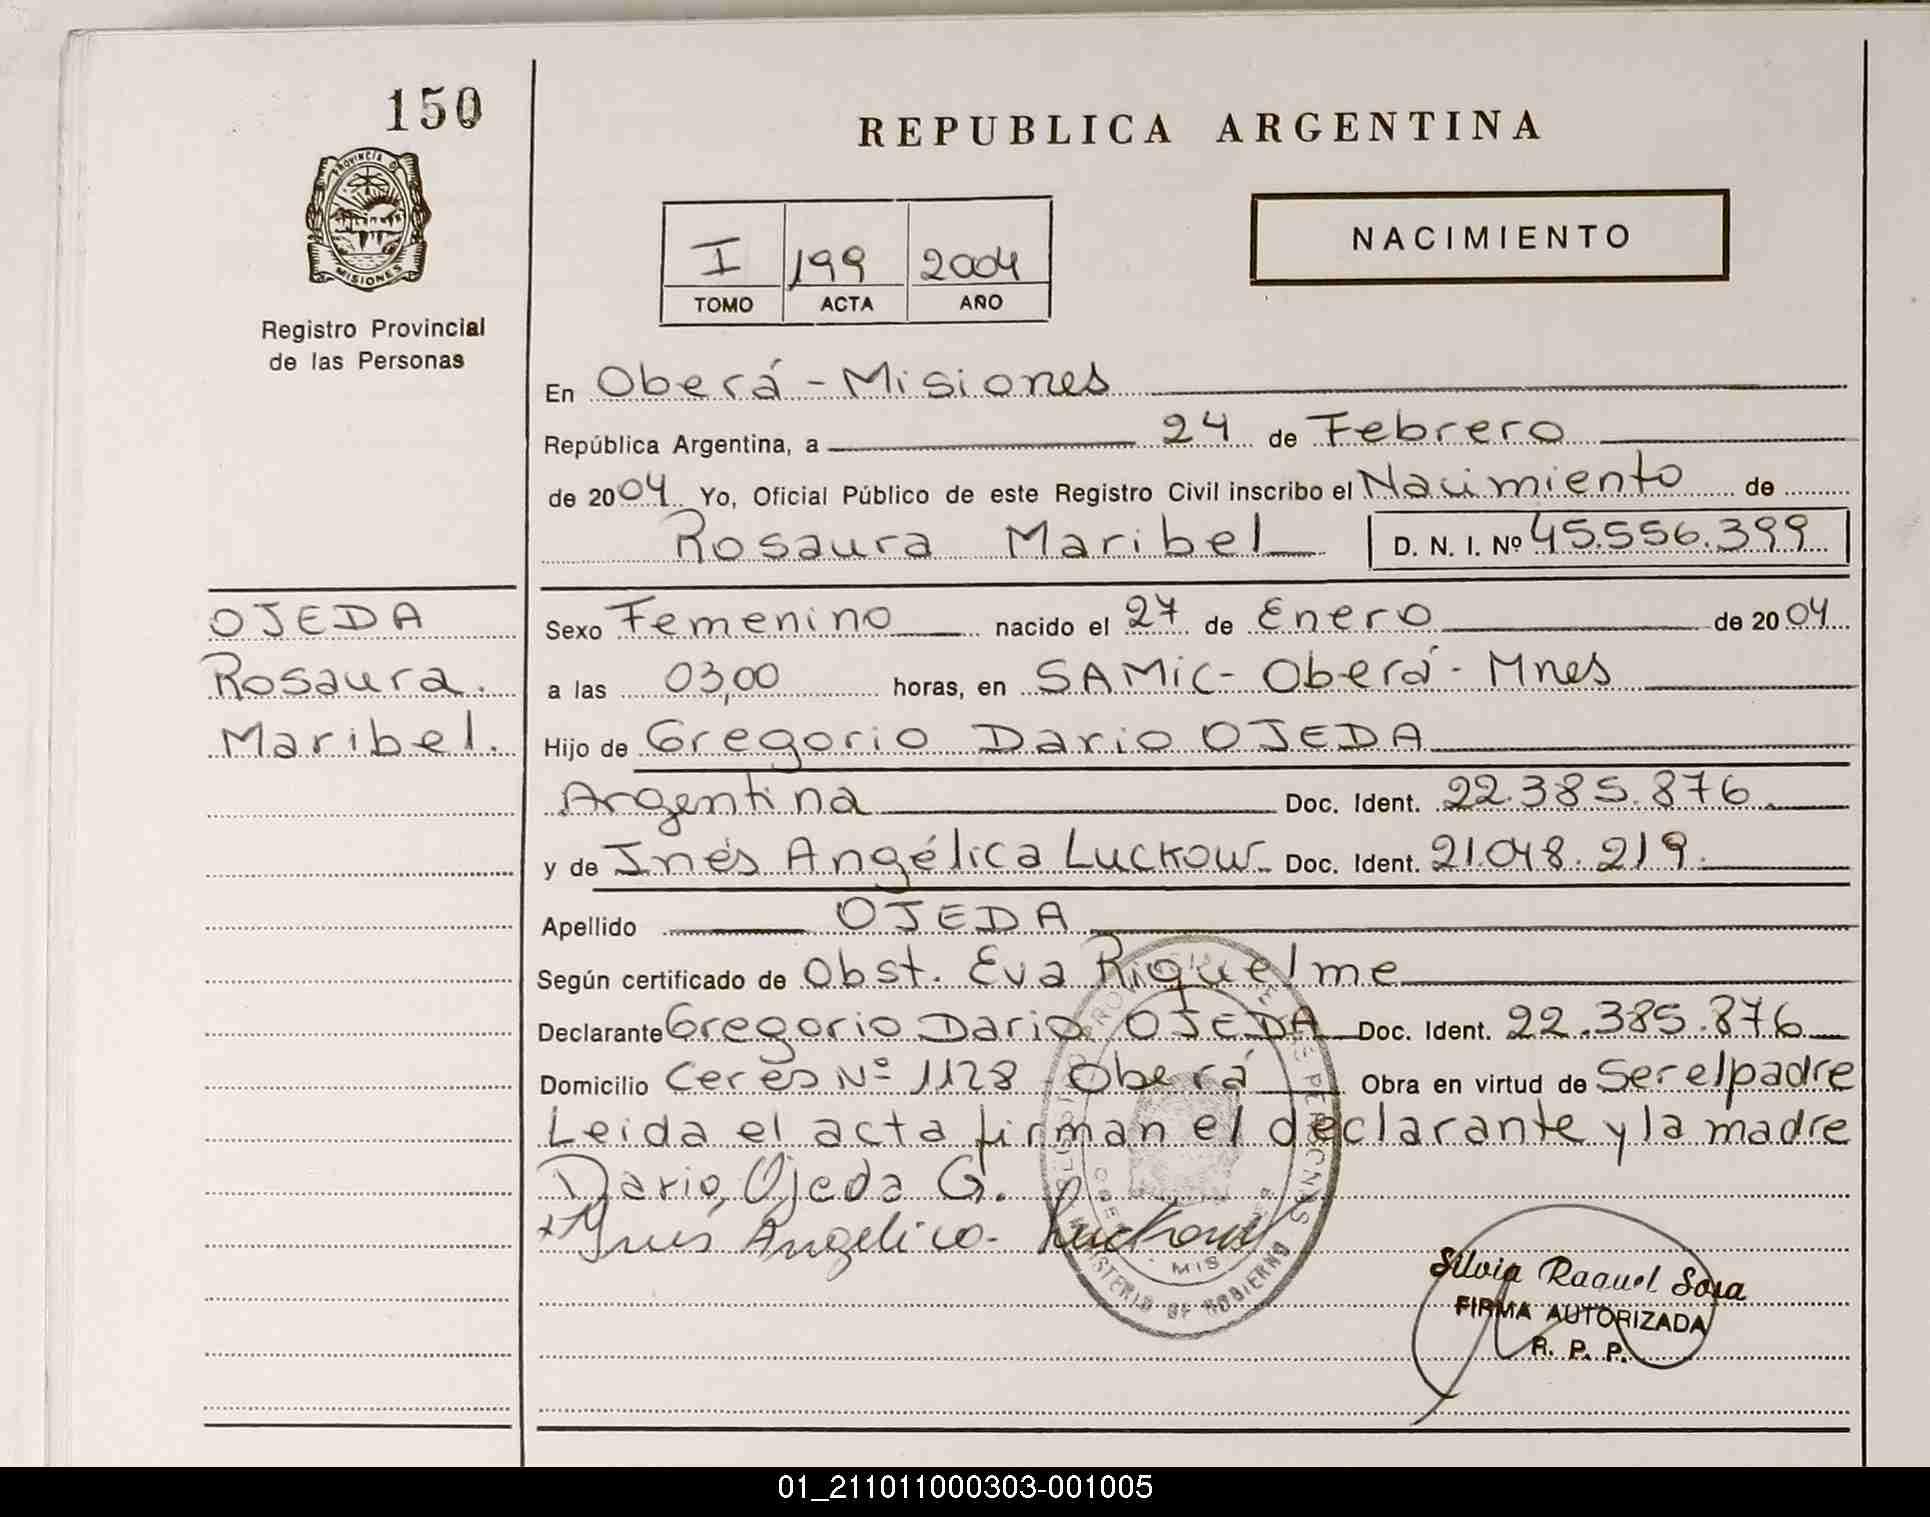 150
REPUBLICA ARGENTINA
PROVINCIA DE
MISIONES
Registro Provincial
de las Personas
NACIMIENTO
I 199 2004
TOMO ACTA AÑO
En Oberá - Misiones
República Argentina, a 24 de Febrero
de 2004 Yo, Oficial Público de este Registro Civil inscribo el Nacimiento de
Rosaura Maribel D. N. I. Nº 45.556.399
OJEDA
Rosaura.
Maribel.
Sexo Femenino nacido el 27 de Enero de 2004
a las 03,00 horas, en SAMIC - Oberá - Mnes
Hijo de Gregorio Dario OJEDA
Argentina Doc. Ident. 22.385.876.
y de Inés Angélica Luckow Doc. Ident. 21.048.219.
Apellido OJEDA
Según certificado de Obst. Eva Riquelme
Declarante Gregorio Dario OJEDA Doc. Ident. 22.385.876
Domicilio Ceres Nº 1128 Oberá Obra en virtud de Ser el padre
Leida el acta firman el declarante y la madre
Dario, Ojeda G.
Inés Angelica Luckow
MINISTERIO DE GOBIERNO
MIS
Silvia Raquel Sosa
FIRMA AUTORIZADA
R. P. P.
01_211011000303-001005